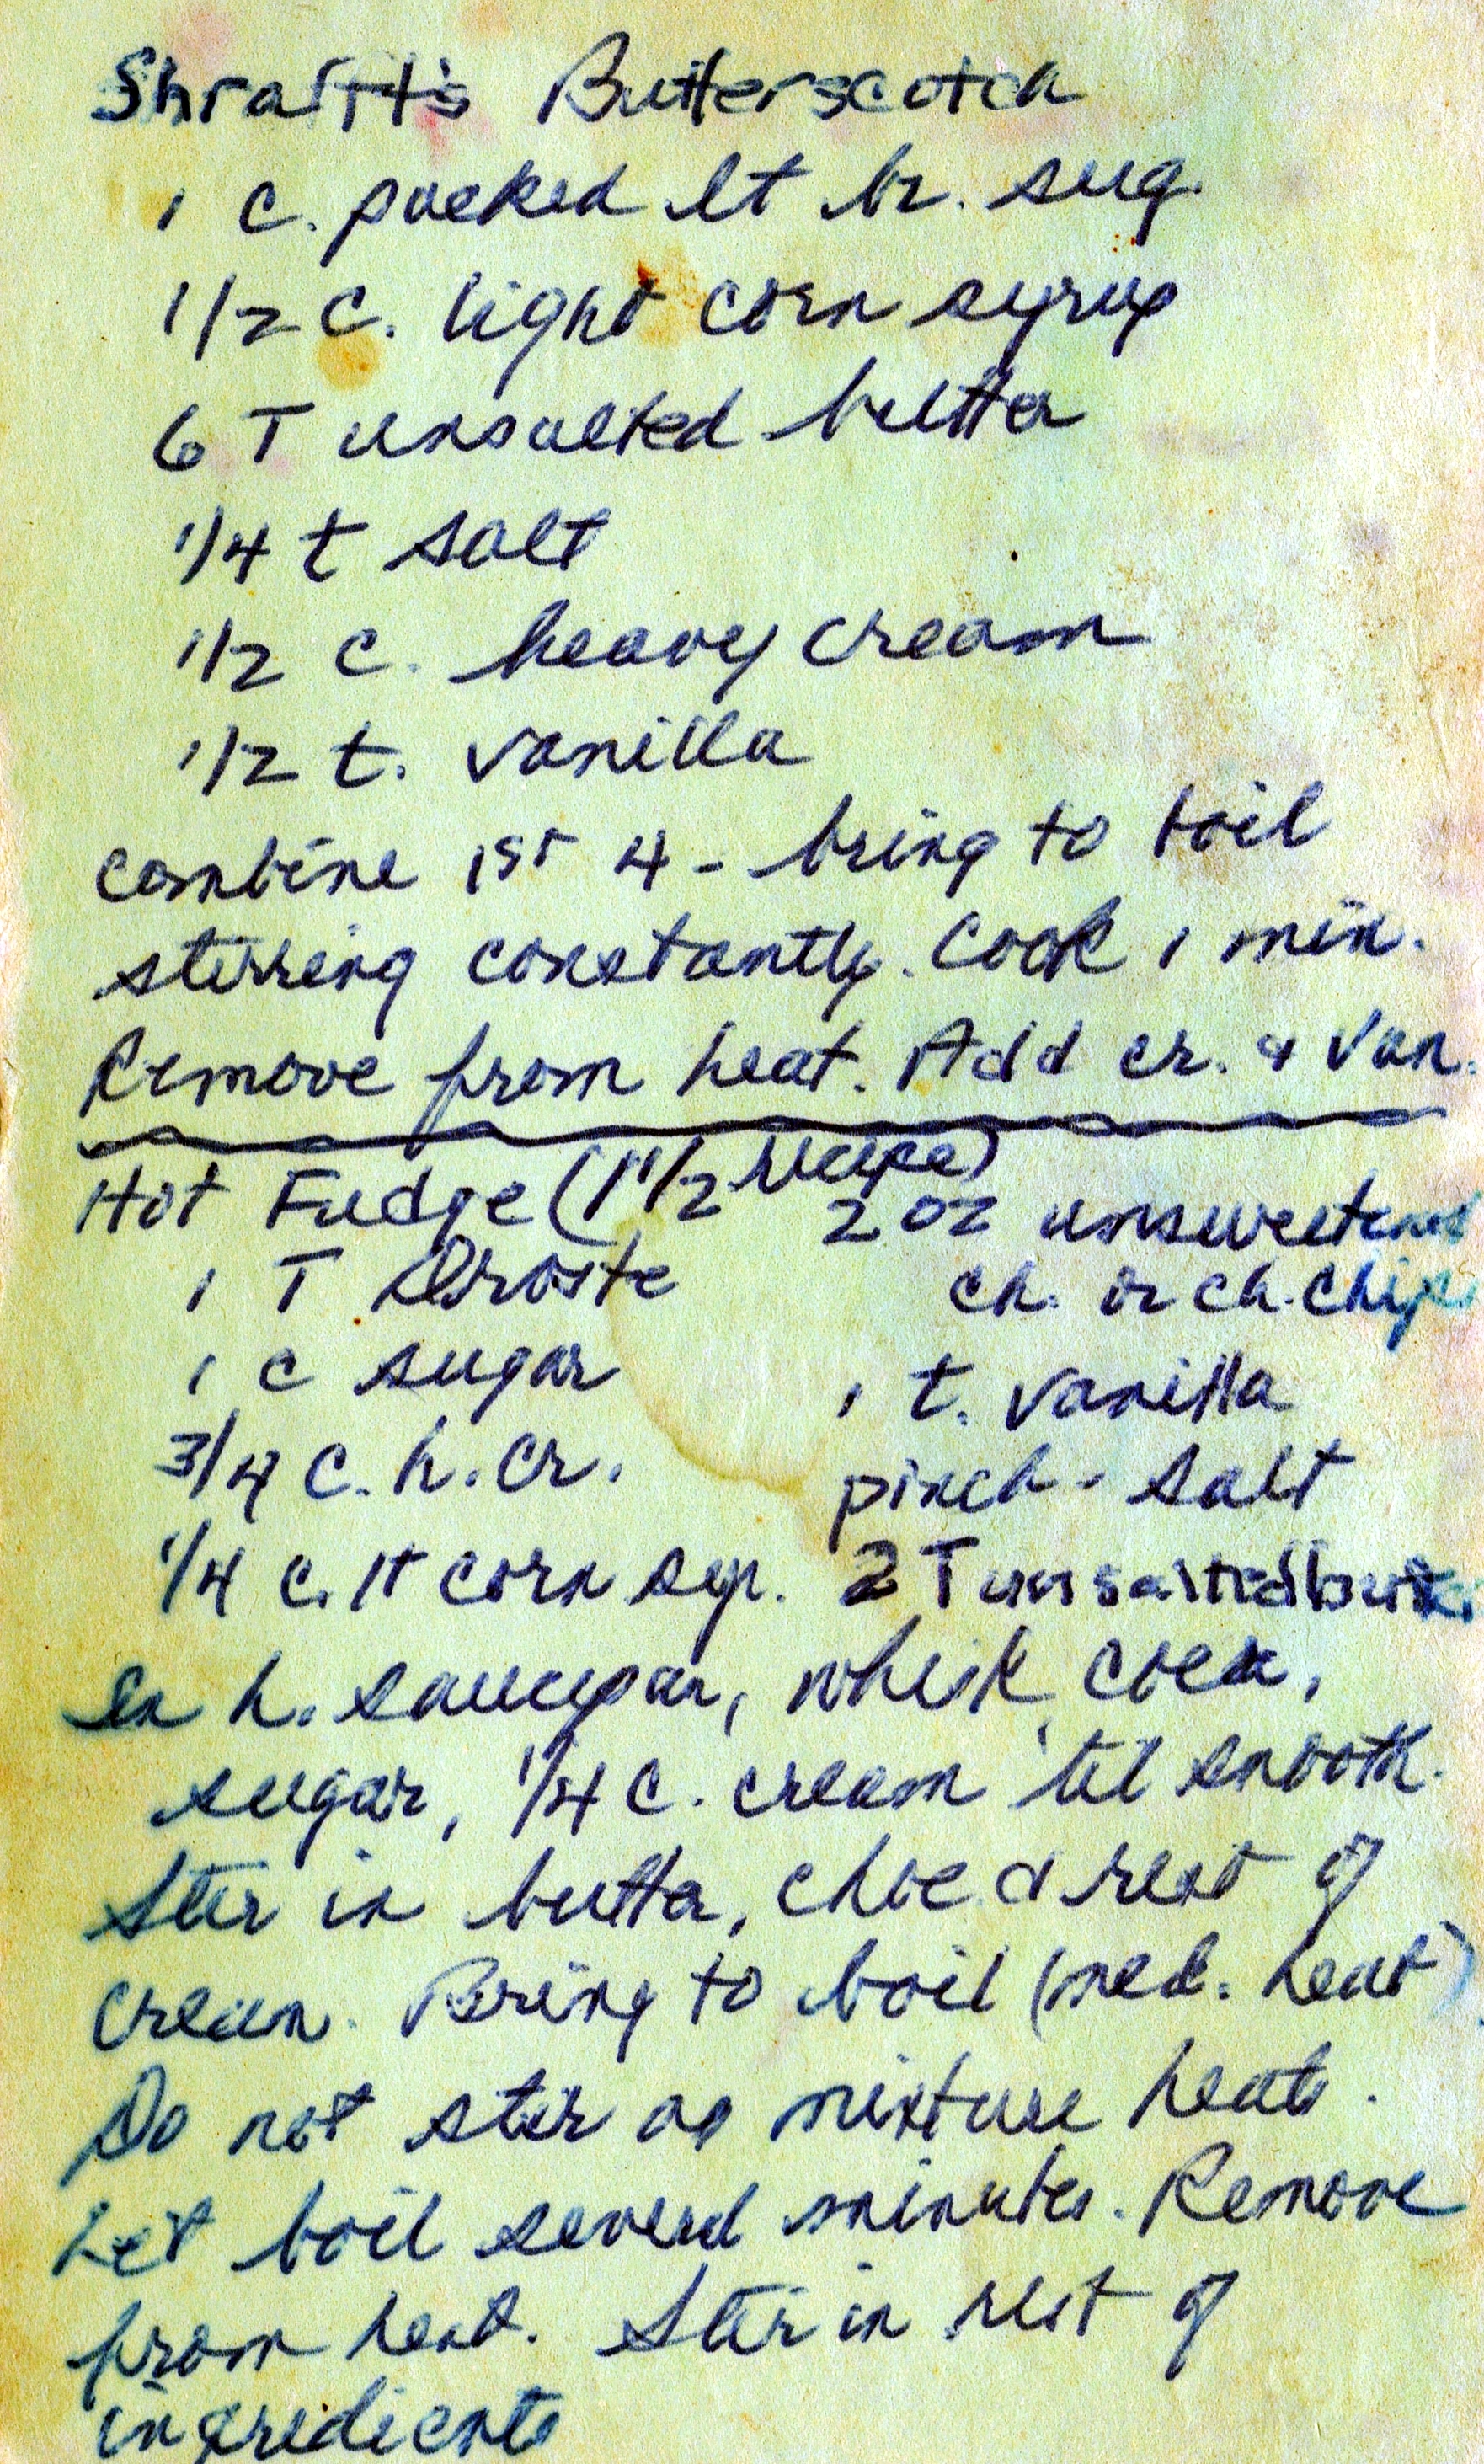 Shrafft's Butterscotch
1 c. packed lt br. sug.
1/2 c. light corn syrup
6 T unsalted butter
1/4 t salt
1/2 c. heavy cream
1/2 t. vanilla
combine 1st 4 - bring to boil
stirring constantly. Cook 1 min.
Remove from heat. Add cr. & Van.
Hot Fudge (1 1/2 recipe)
1 T Droste
1 c sugar
3/4 c. h. cr.
1/4 c. lt corn syr.
2 oz unsweetened
ch. or ch. chips
1 t. vanilla
pinch - salt
2 T unsalted butter
In h. saucepan, whisk cocoa,
sugar, 1/4 c. cream 'til smooth.
Stir in butter, choc. & rest of
cream. Bring to boil (med. heat)
Do not stir as mixture heats.
Let boil several minutes. Remove
from heat. Stir in rest of
ingredients